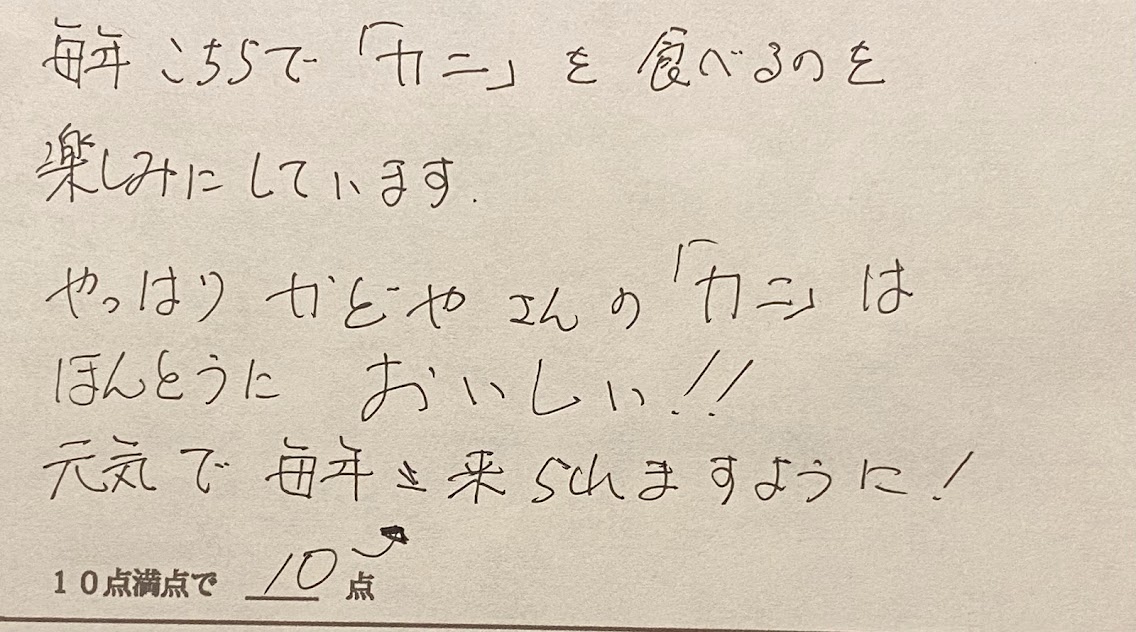 毎年こちらで「カニ」を食べるのを
楽しみにしています.
やっはり かどやさんの「カニ」は
ほんとうに おいしい!!
元気で毎年を来られますように!
10点満点で 10 点